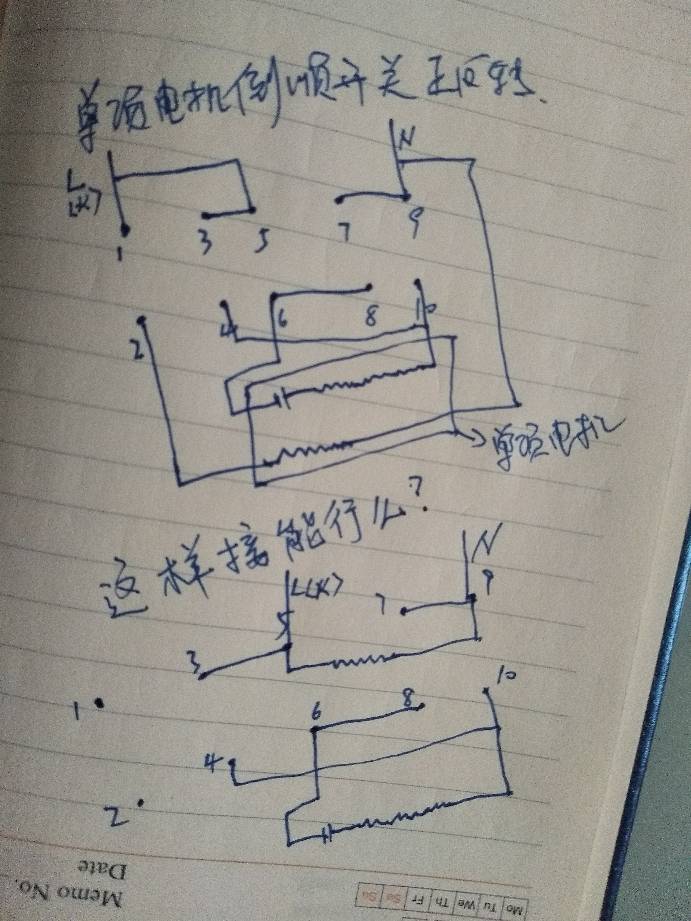 单项电机倒顺开关正反转.
L N
(火)
1 3 5 7 9
2 4 6 8 10
单项电机
这样接能行么?
L(火) N
3 5 7 9
1 6 8 10
4
2
Memo No.
Date
Mo Tu We Th Fr Sa Su